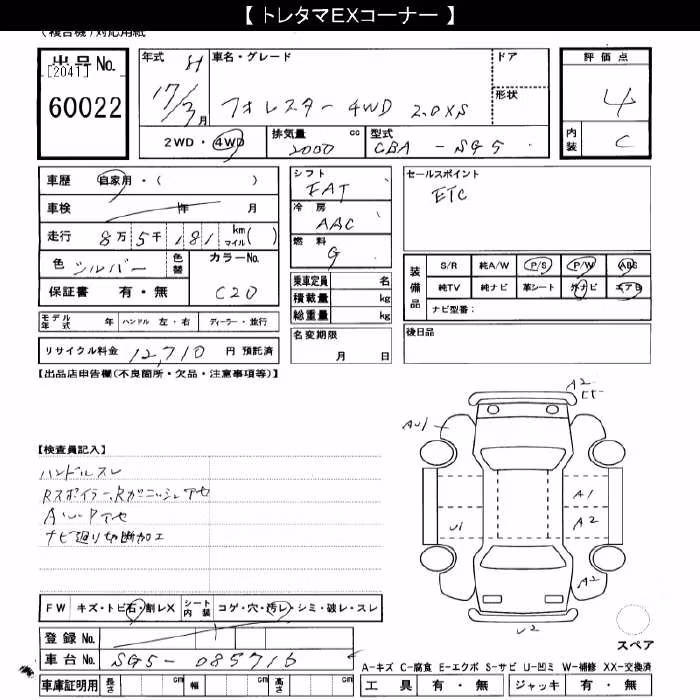 【 トレタマEXコーナー 】
(複合機)対応用紙
出品No.
[2041]
60022
年式 H 17/3月
車名・グレード
フォレスター 4WD 2.0XS
ドア
形状
評価点
4
内装 C
2WD・4WD
排気量 cc 2000
型式 CBA - SG5
車歴 自家用・( )
車検 年 月
走行 8万 5千 181 km マイル( )
色 シルバー 色替 カラーNo. C20
保証書 有・無
シフト FAT
冷房 AAC
燃料 G
乗車定員 名
積載量 kg
総重量 kg
セールスポイント
ETC
装備品
S/R 純A/W P/S P/W ABS
純TV 純ナビ 革シート 外ナビ エアB
ナビ型番:
モデル年式 年 ハンドル 左・右 ディーラー・並行
名変期限 月 日
後日品
リサイクル料金 12,710 円 預託済
【出品店申告欄(不良箇所・欠品・注意事項等)】
A2
AU1
【検査員記入】
ハンドルスレ
Rスポイラー、Rガーニッシュアセ
ナビ廻り切断加工
A1
A2
U1
A2
U2
FW キズ・トビ石・割レX シート内装 コゲ・穴・汚レ・シミ・破レ・スレ
スペア
登録No.
車台No. SG5-085716
A-キズ C-腐食 E-エクボ S-サビ U-凹ミ W-補修 XX-交換済
車庫証明用 長さ cm 幅 cm 高さ cm
工具 有・無 ジャッキ 有・無